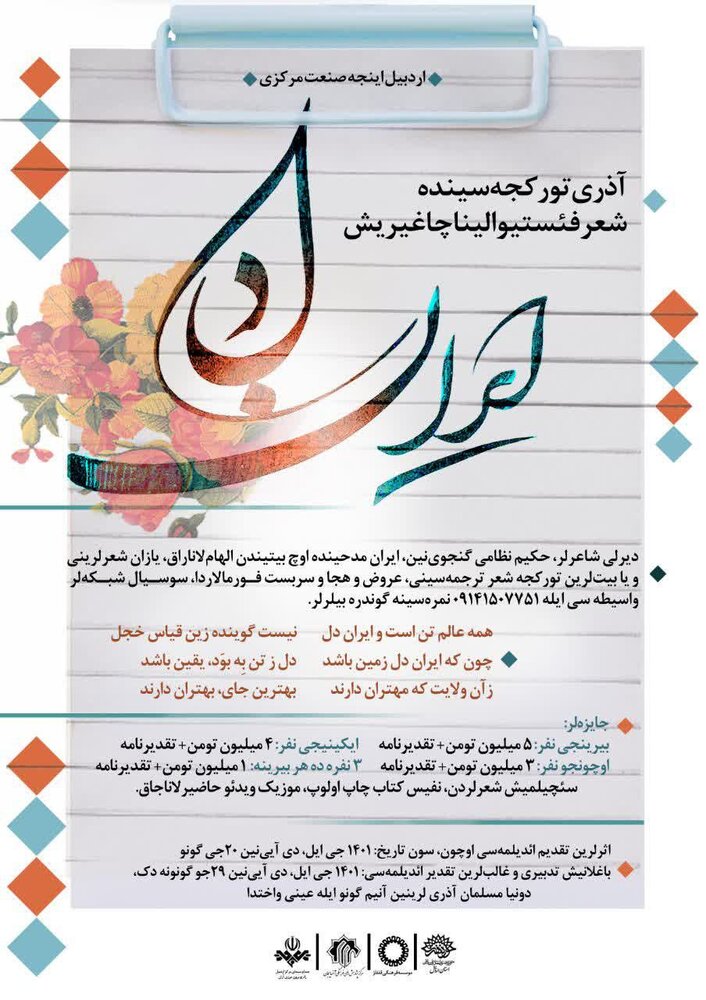 اردبیل اینجه صنعت مرکزی
آذری تورکجه سینده
شعر فئستیوالینا چاغیریش
ایران
دل
دیرلی شاعرلر، حکیم نظامی گنجوی‌نین، ایران مدحینده اوچ بیتیندن الهام‌لاناراق، یازان شعرلرینی
و یا بیت‌لرین تورکجه شعر ترجمه‌سینی، عروض و هجا و سربست فورمالاردا، سوسیال شبکه‌لر
واسیطه سی ایله ۰۹۱۴۱۵۰۷۷۵۱ نمره‌سینه گوندره بیلرلر.
همه عالم تن است و ایران دل نیست گوینده زین قیاس خجل
چون که ایران دل زمین باشد دل ز تن بِه بوَد، یقین باشد
زآن ولایت که مهتران دارند بهترین جای، بهتران دارند
جایزه‌لر:
بیرینجی نفر: ۵ میلیون تومن+ تقدیرنامه ایکینیجی نفر: ۴ میلیون تومن+ تقدیرنامه
اوچونجو نفر: ۳ میلیون تومن+ تقدیرنامه ۳ نفره ده هر بیرینه: ۱ میلیون تومن+ تقدیرنامه
سئچیلمیش شعرلردن، نفیس کتاب چاپ اولوپ، موزیک ویدئو حاضیرلاناجاق.
اثرلرین تقدیم ائدیلمه‌سی اوچون، سون تاریخ: ۱۴۰۱ جی ایل، دی آیی‌نین ۲۰جی گونو
باغلانیش تدبیری و غالب‌لرین تقدیر ائدیلمه‌سی: ۱۴۰۱ جی ایل، دی آیی‌نین ۲۹جو گونونه دک،
دونیا مسلمان آذری لرینین آنیم گونو ایله عینی واختدا
موسسه فرهنگی قفقاز